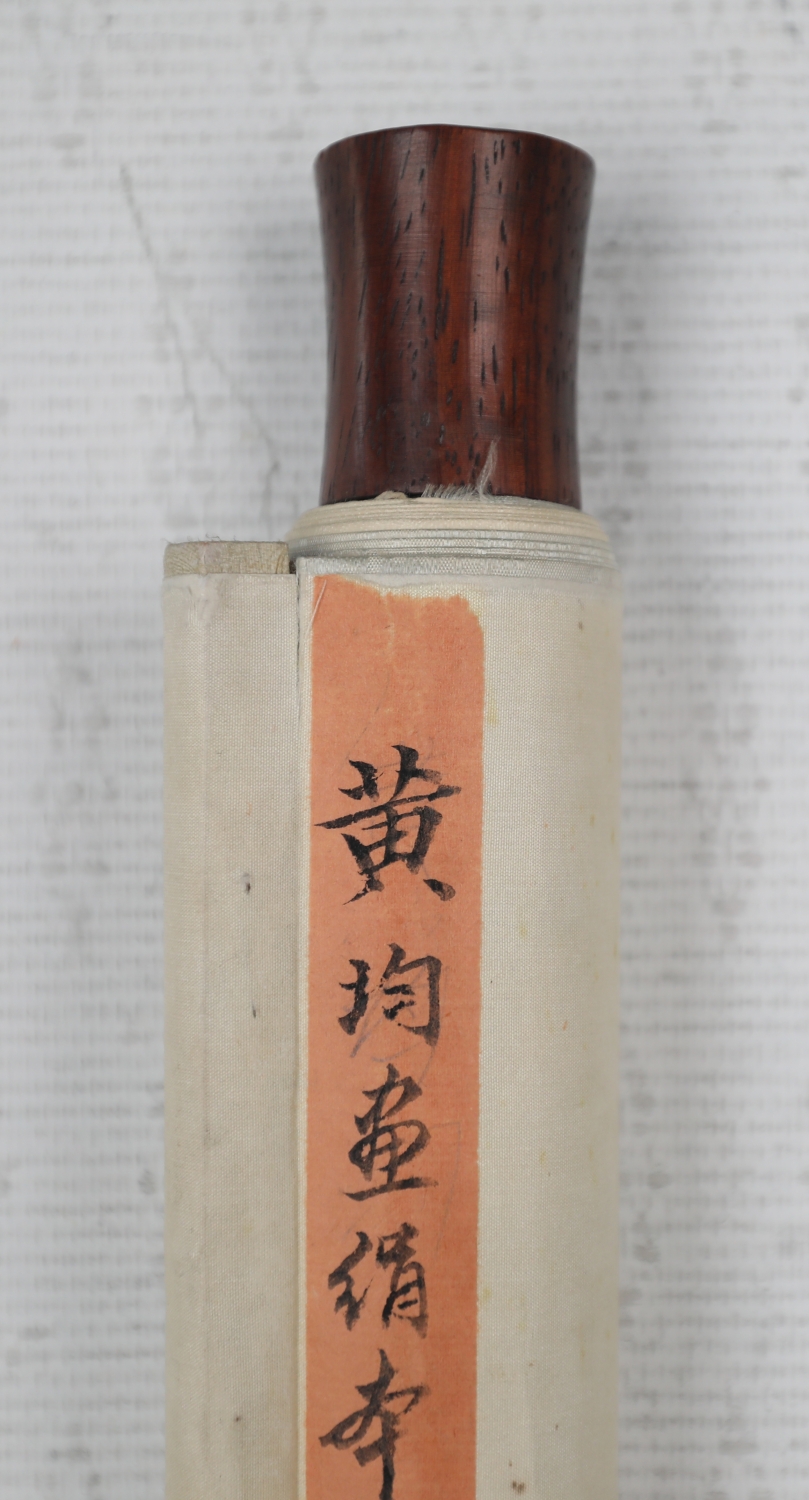 黄均畫絹本